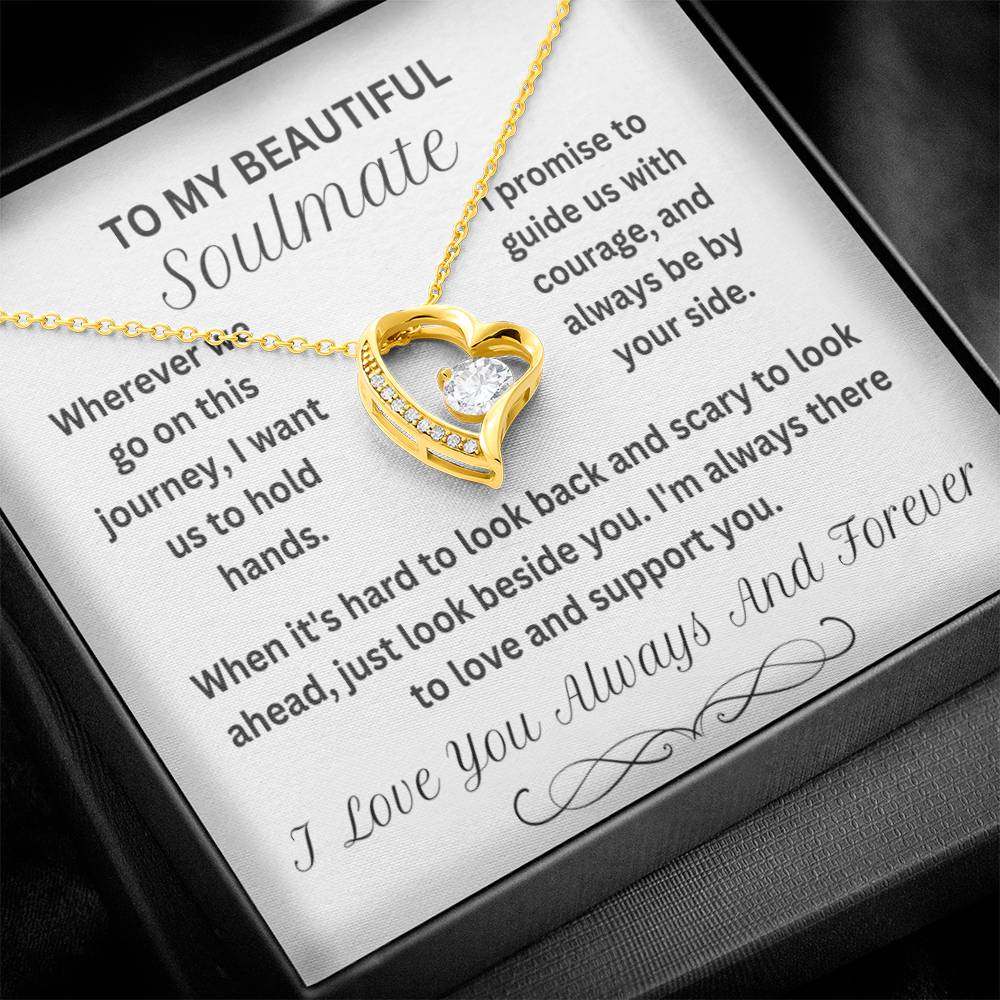 TO MY BEAUTIFUL
Soulmate
Wherever we
go on this
journey, I want
us to hold
hands.
I promise to
guide us with
courage, and
always be by
your side.
When it's hard to look back and scary to look
ahead, just look beside you. I'm always there
to love and support you.
I Love You Always And Forever